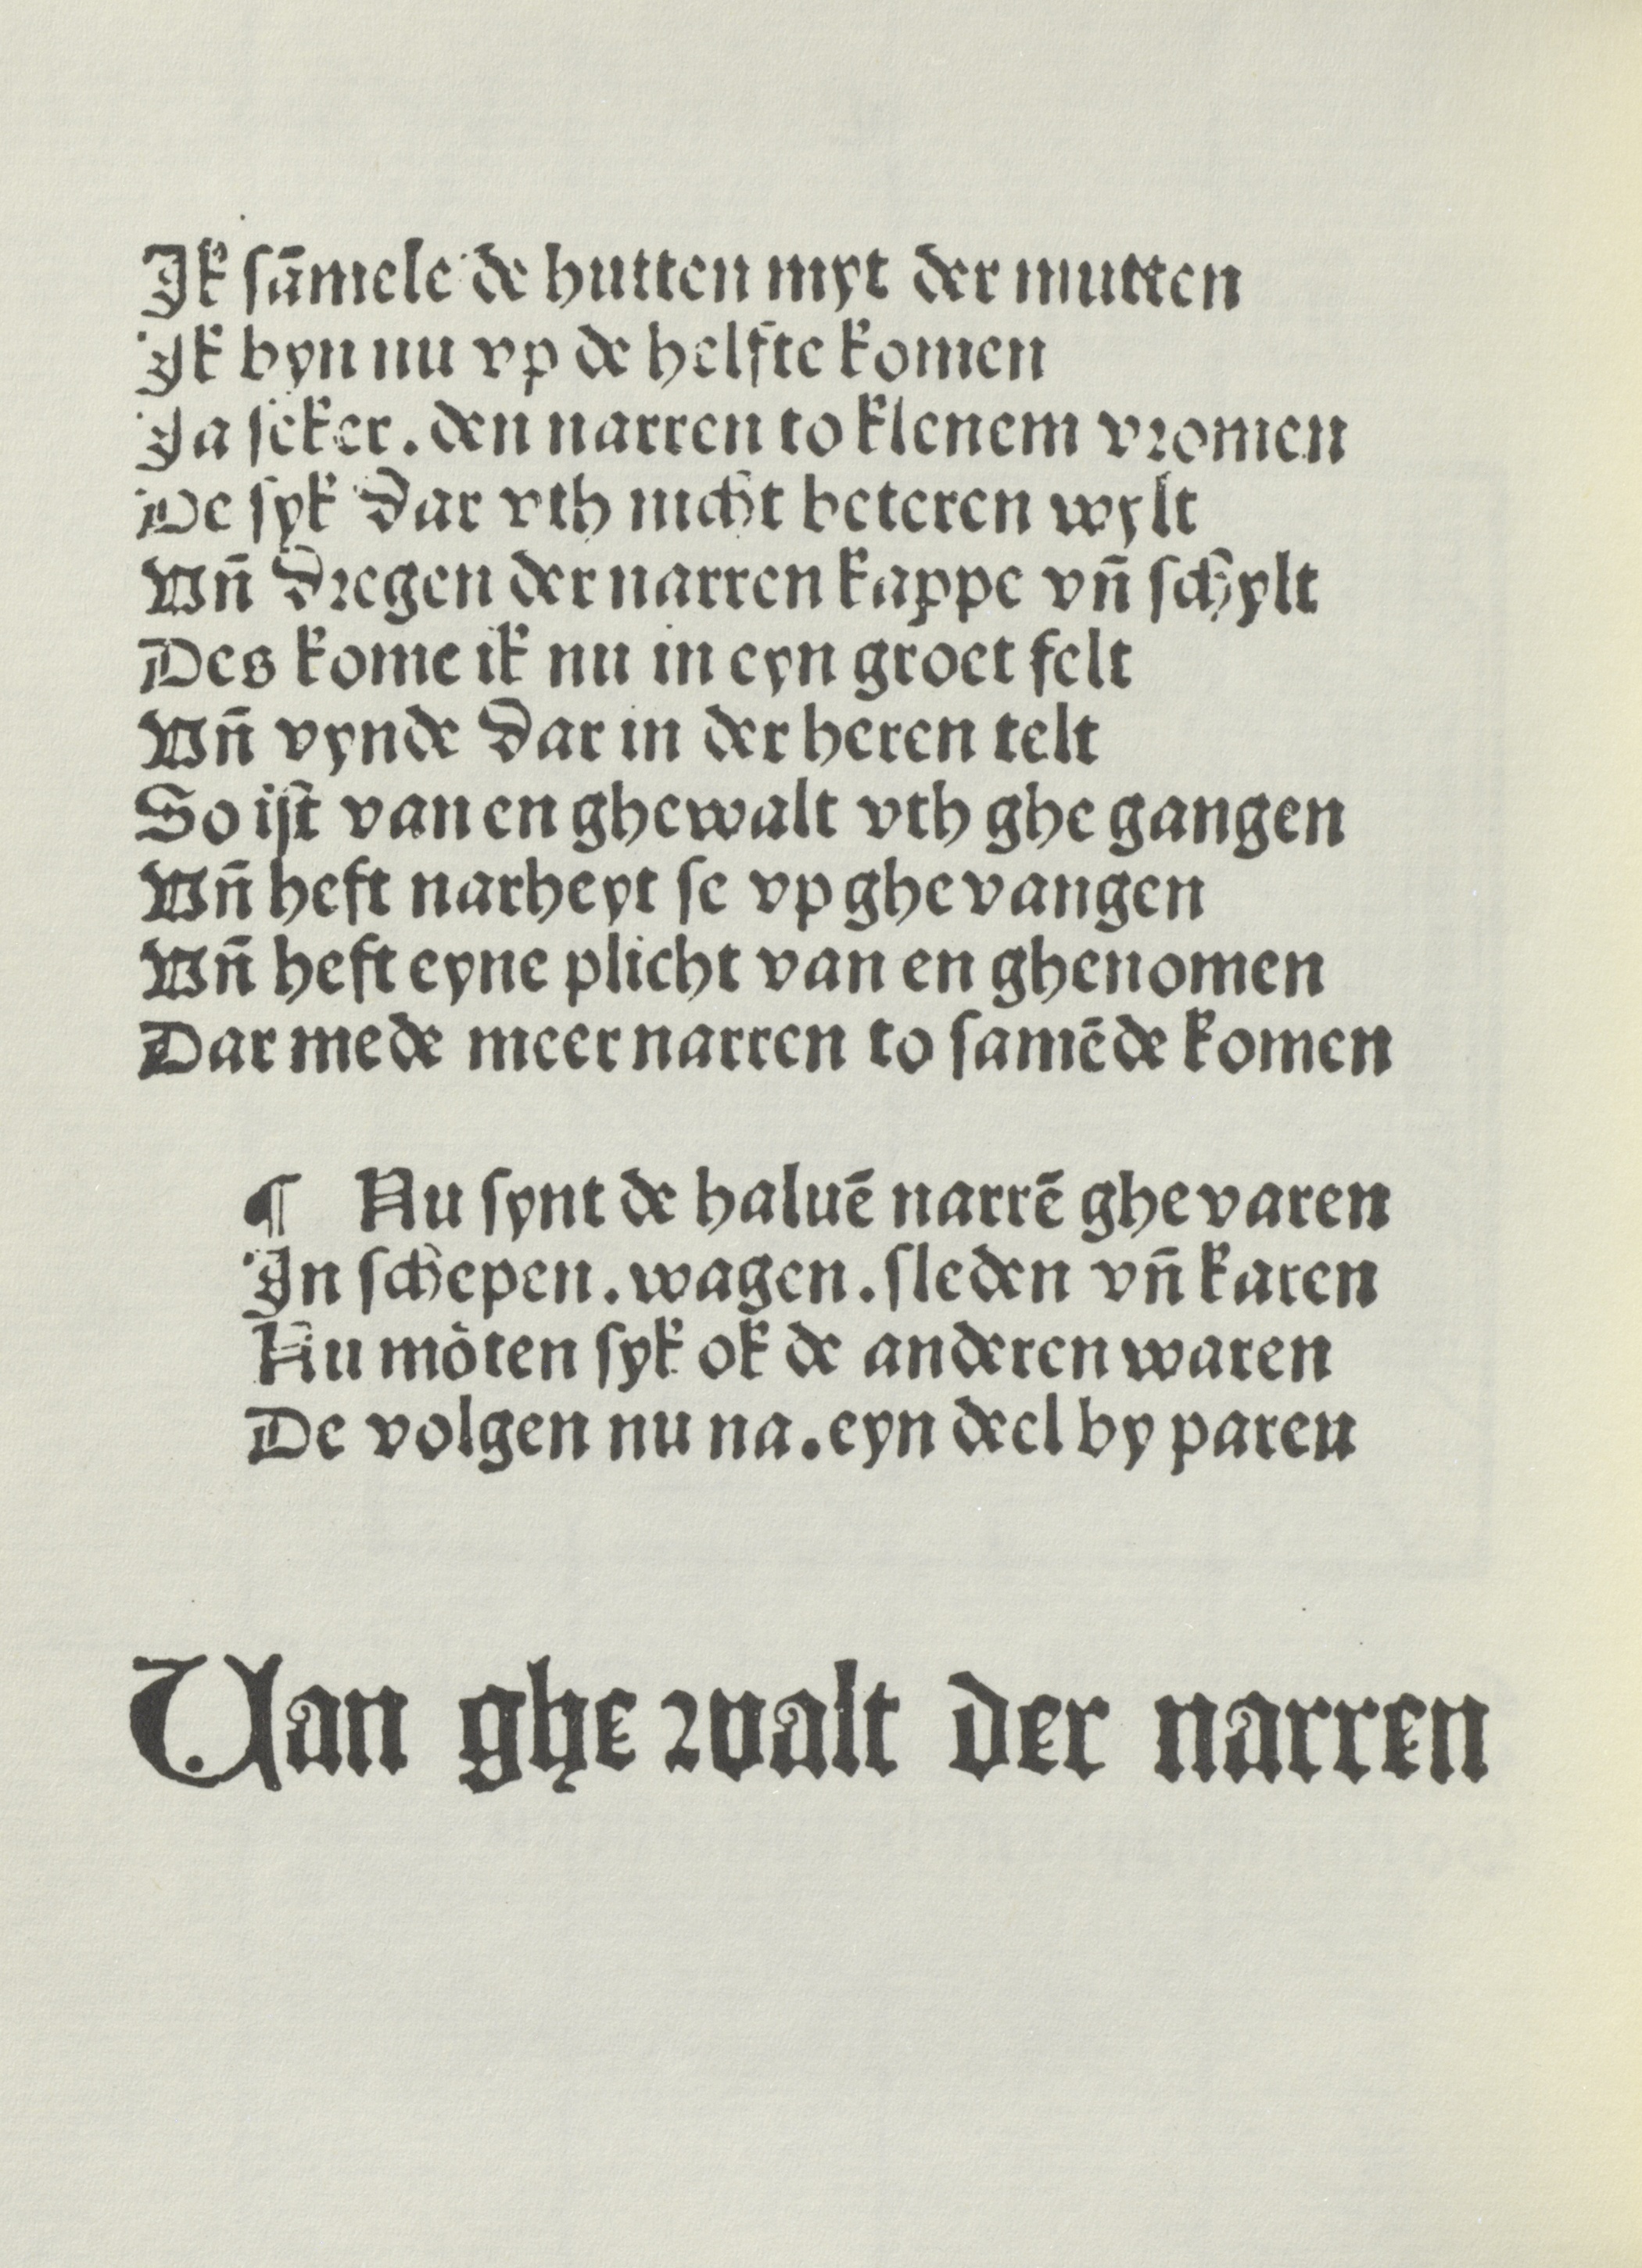 Ik sāmele de hutten myt der mutten
Ik byn nu vp de helfte komen
Ja seker. den narren to klenem vromen
De syk dar vth nicht beteren wylt
Vn̄ dregen der narren kappe vn̄ schylt
Des kome ik nu in eyn groet felt
Vn̄ vynde dar in der heren telt
So ist van en ghewalt vth ghe gangen
Vn̄ heft narheyt se vp ghevangen
Vn̄ heft eyne plicht van en ghenomen
Dar mede meer narren to samēde komen
¶ Nu synt de haluē narrē ghevaren
In schepen. wagen. sleden vn̄ karen
Nu mòten syk ok de anderen waren
De volgen nu na. eyn deel by paren
Uan ghe walt der narren